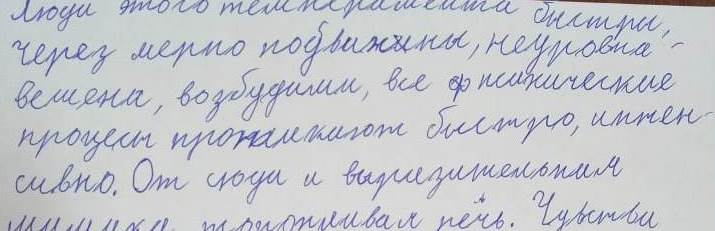 Люди этого темперамента быстры,
через мерно подвижны, неуровна-
вешена, возбудими, все психические
процесы протикают быстро, интен-
сивно. От сюди и выризительним
торопливая речь. Чувства